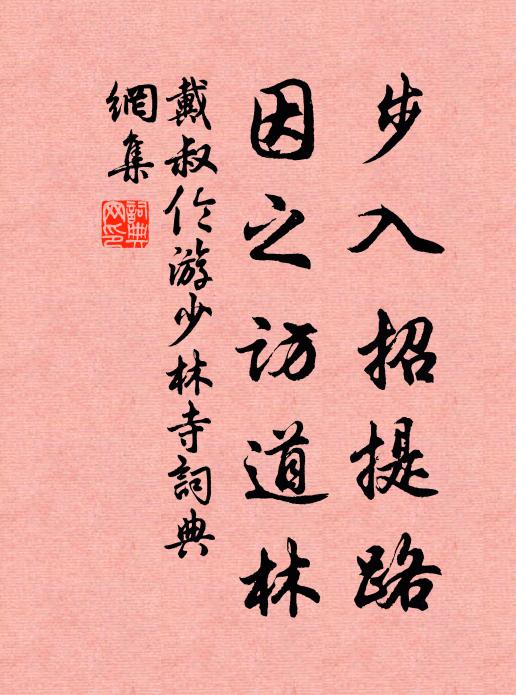 步入招提路
因之访道林
戴叔伦游少林寺詞典
網集
詞典網印